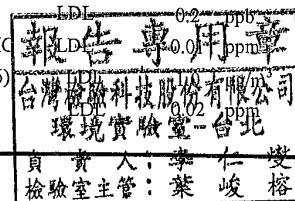 LDL 0.2 ppb
報告專用章
LDL 0.01 ppm
台灣檢驗科技股份有限公司
LDL 0.02 ppm
環境實驗室-台北
負責人：李仁燮
檢驗室主管：葉峻榕